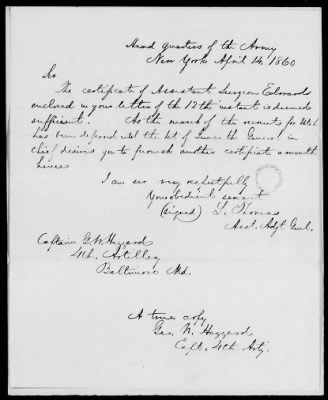 Head quarters of the Army
New York April 14, 1860
Sir
The certificate of Assistant Surgeon Edwards
enclosed in your letter of the 12th instant is deemed
sufficient. As the march of the recruits for Utah
has been deferred until the 1st of June the General in
chief desires you to furnish another certificate a month
hence
I am sir very respectfully
Your obedient servant
(signed) L. Thomas
Asst. Adjt Genl.
Captain G. W. Hazzard
4th. Artillery
Baltimore Md.
A true copy
Geo. W. Hazzard
Capt. 4th Arty.